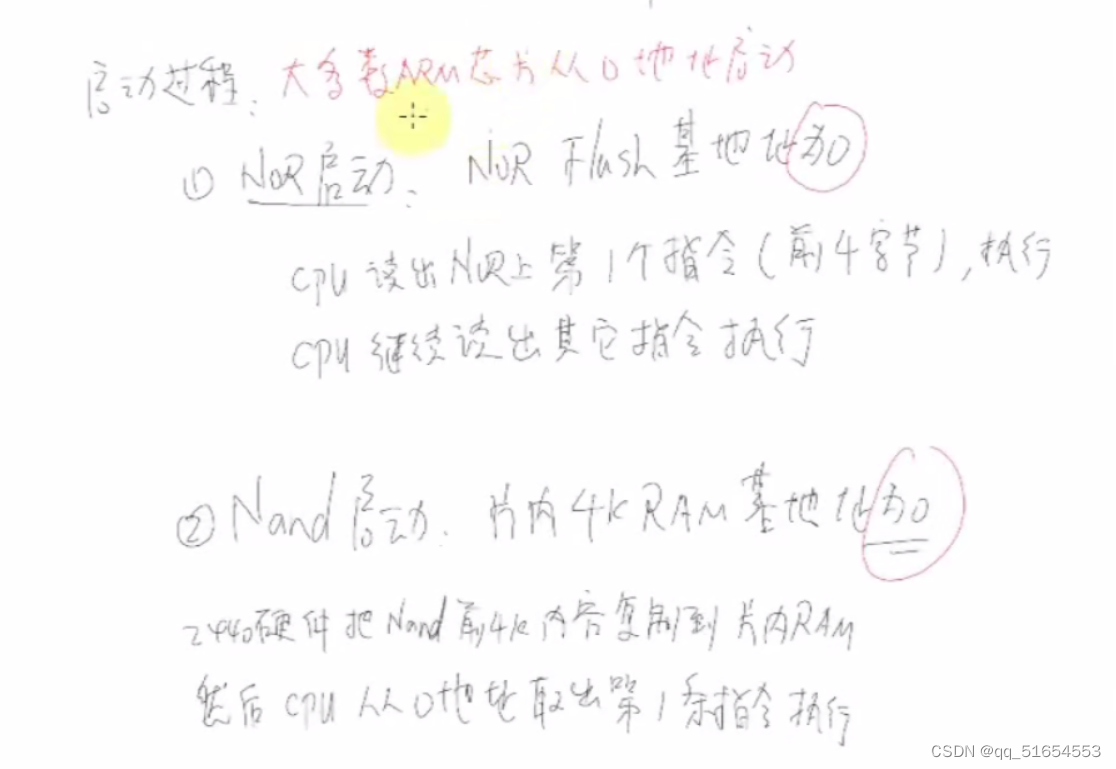 启动过程: 大多数ARM芯片从0地址启动
① NOR启动: NOR Flash基地址为0
CPU读出NOR上第1个指令(前4字节),执行
CPU继续读出其它指令执行
② Nand启动: 片内4K RAM基地址为0
2440硬件把Nand前4K内容复制到片内RAM
然后CPU从0地址取出第1条指令执行
CSDN @qq_51654553